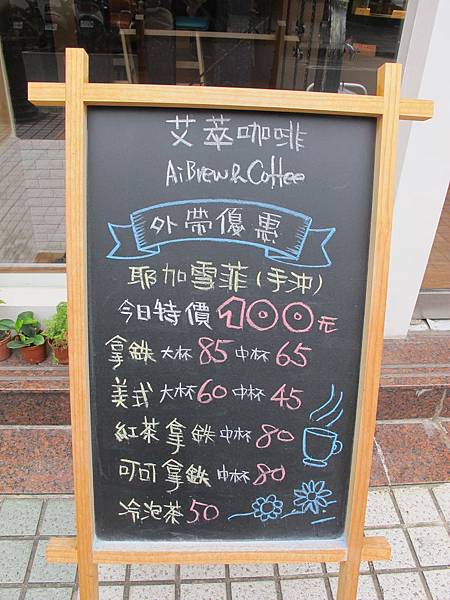 艾萃咖啡
AiBrew & Coffee
外帶優惠
耶加雪菲(手沖)
今日特價 100元
拿鐵 大杯 85 中杯 65
美式 大杯 60 中杯 45
紅茶拿鐵 中杯 80
可可拿鐵 中杯 80
冷泡茶 50